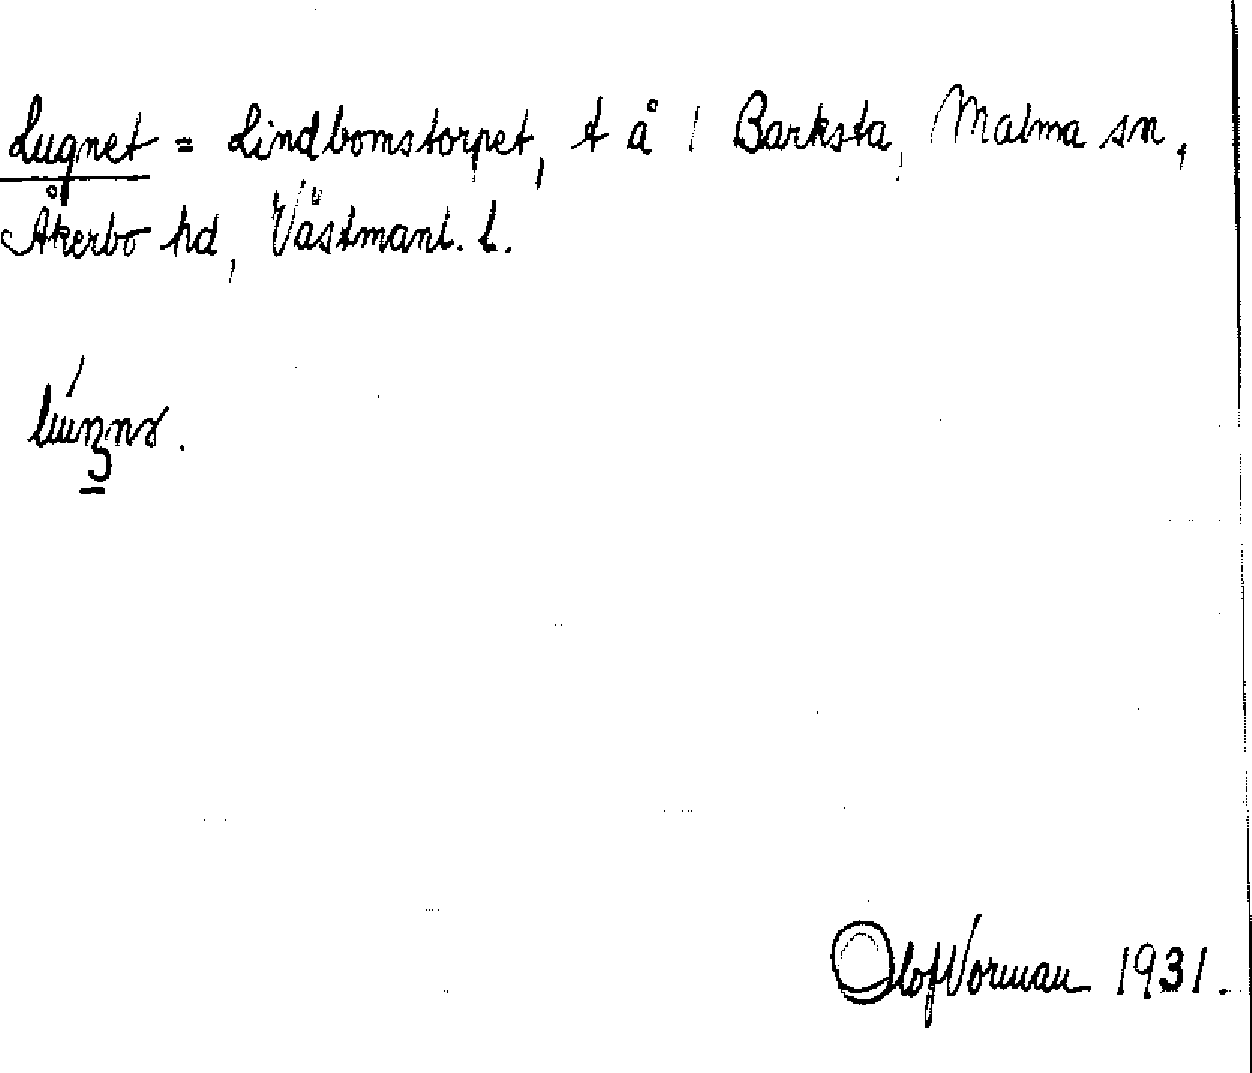 Lugnet = Lindbomstorpet, t å 1 Barksta, Malma sn,
Åkerbo hd, Västmanl. l.
Olof Vorman 1931.